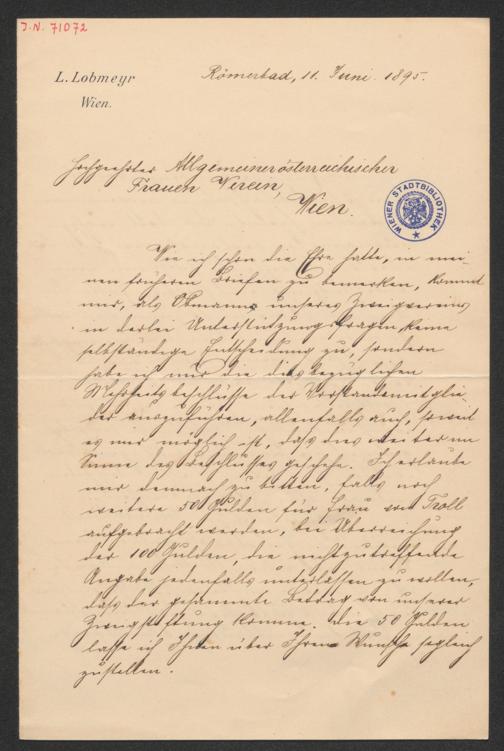 J.N. 71072
L. Lobmeyr
Wien.
Römerbad, 11. Juni. 1895.
Hochgeehrter Allgemeiner österreichischer
Frauen Verein,
Wien.
WIENER STADTBIBLIOTHEK
Wie ich schon die Ehre hatte, in mei-
nen früheren Briefen zu bemerken, kommt
mir, als Obmann unseres Zweigvereins
in derlei Unterstützungsfragen keine
selbständige Entscheidung zu, sondern
habe ich nur die diesbezüglichen
Mehrheitsbeschlüsse der Vorstandsmitglie-
der auszuführen, allenfalls auch, soweit
es mir möglich ist, dass dies weiter im
Sinne des Beschlusses geschehe. Ich erlaube
mir demnach zu bitten, falls noch
weitere 50 Gulden für Frau von Troll
aufgebracht werden, bei Überreichung
der 100 Gulden, die nicht zutreffende
Angabe jedenfalls unterlassen zu wollen,
dass der gesammte Betrag von unserer
Zweigstiftung komme. Die 50 Gulden
lasse ich Ihnen über Ihren Wunsch sogleich
zustellen.